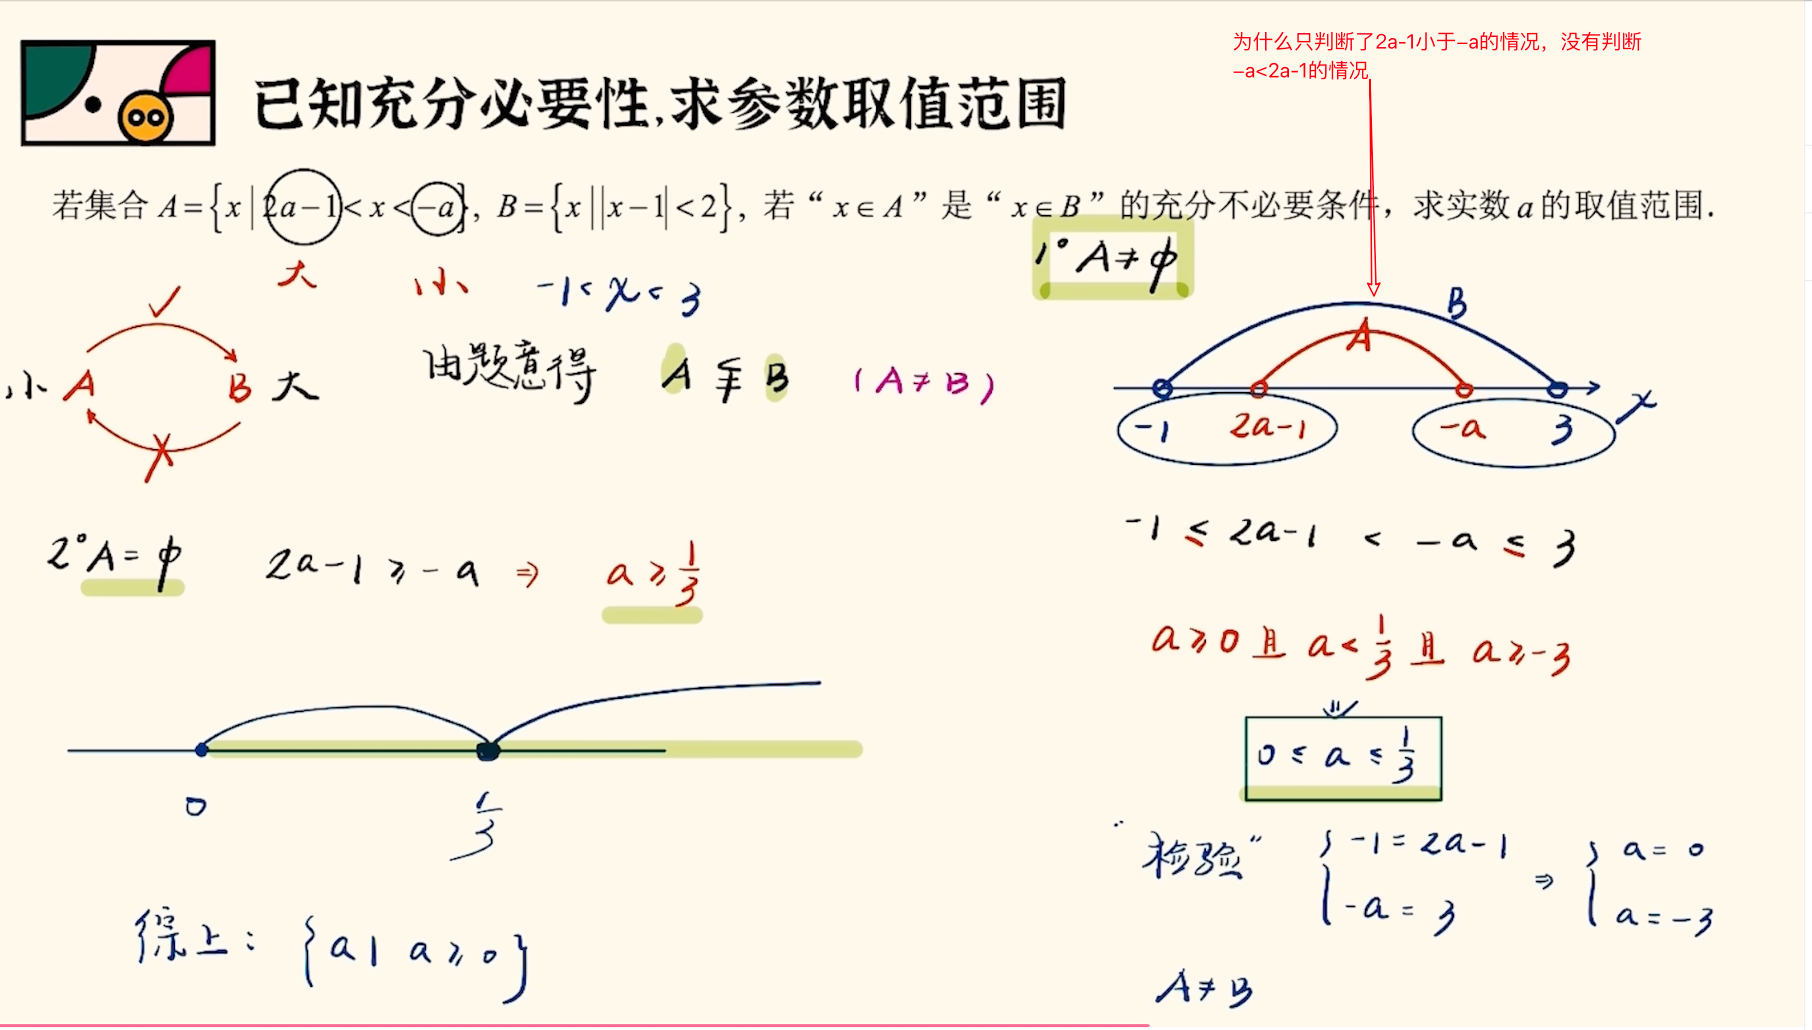 为什么只判断了2a-1小于-a的情况，没有判断
-a<2a-1的情况
已知充分必要性,求参数取值范围
若集合 A={x|2a-1<x<-a}, B={x||x-1|<2}, 若“x∈A”是“x∈B”的充分不必要条件，求实数a的取值范围.
大 小 -1<x<3
1° A≠φ
小 A B 大
由题意得 A⫋B (A≠B)
B
A
-1 2a-1 -a 3 x
-1 ≤ 2a-1 < -a ≤ 3
2° A=φ 2a-1≥-a ⇒ a≥1/3
a≥0 且 a<1/3 且 a≥-3
0 ≤ a ≤ 1/3
0 1/3
“检验” { -1=2a-1 ⇒ { a=0
-a=3 a=-3
综上: {a| a≥0}
A≠B